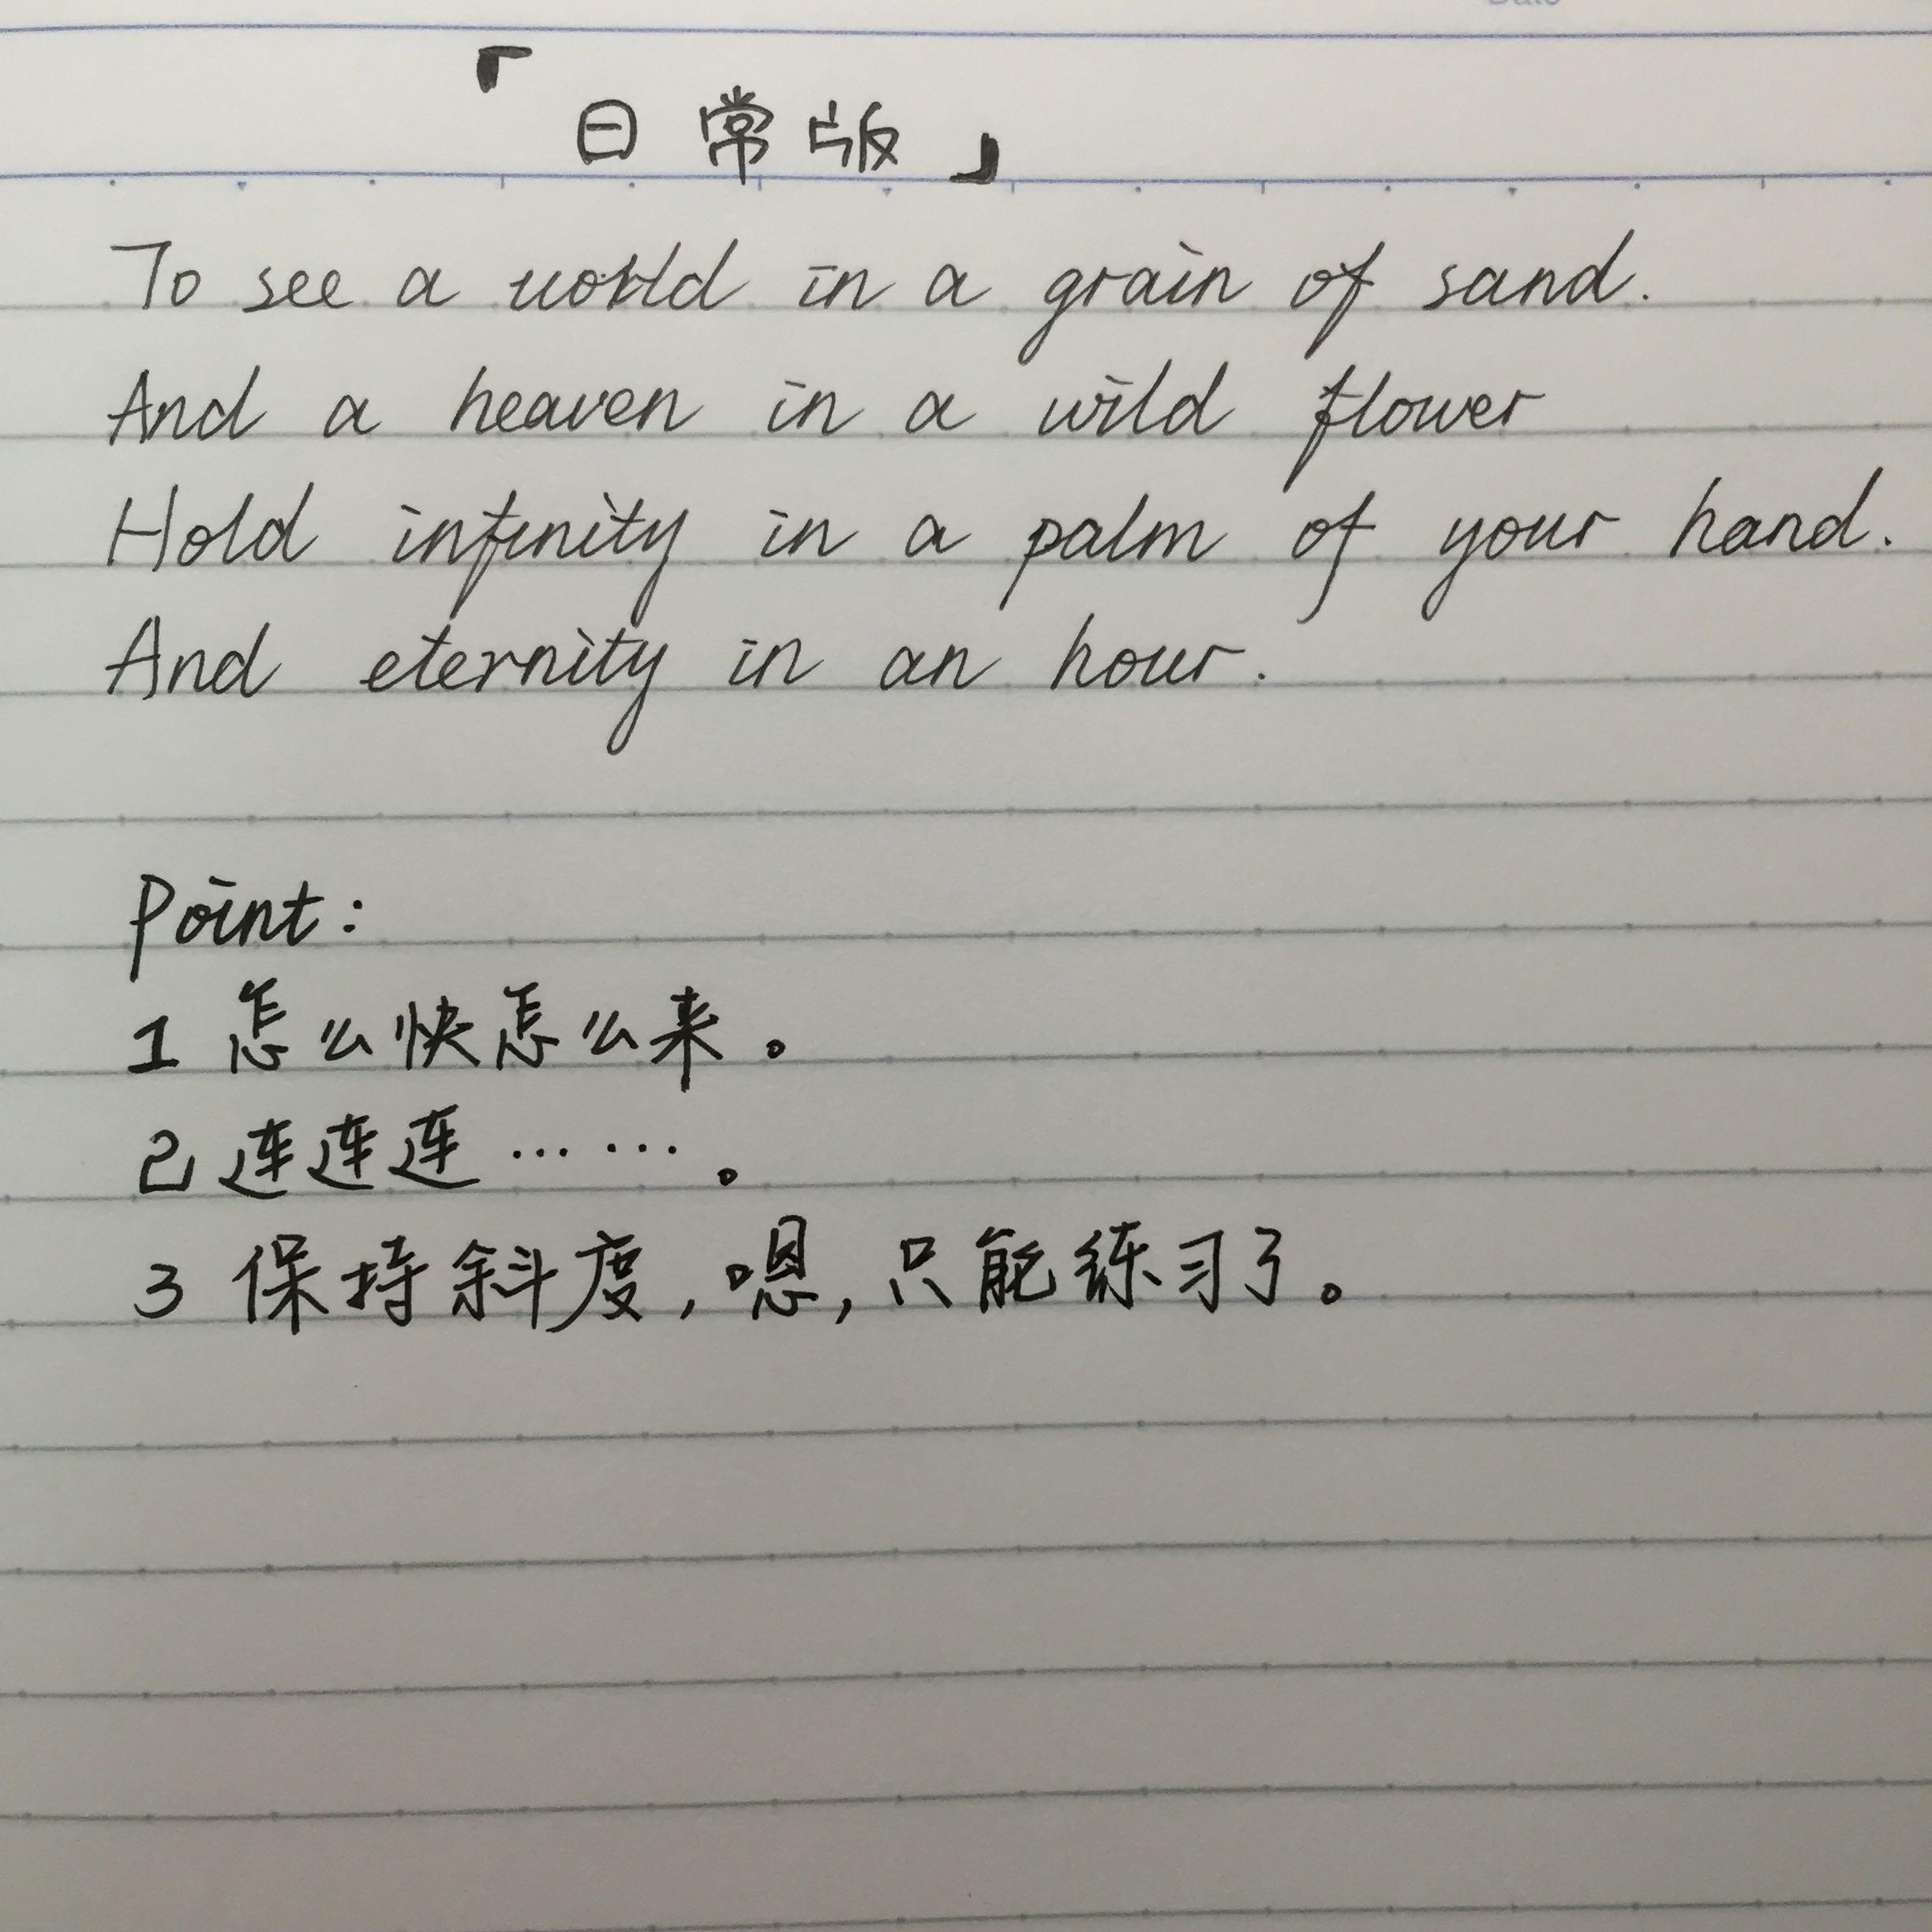 「日常版」
To see a world in a grain of sand.
And a heaven in a wild flower
Hold infinity in a palm of your hand.
And eternity in an hour.
Point:
1 怎么快怎么来。
2 连连连……。
3 保持斜度,嗯,只能练习了。